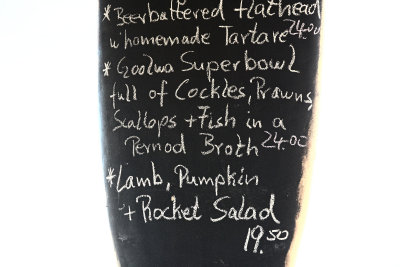 *Beerbattered flathead
w' homemade Tartare 24.00
* Goolwa Superbowl
full of Cockles, Prawns,
Scallops + Fish in a
Pernod Broth 24.00
*Lamb, Pumpkin
+ Rocket Salad
19.50